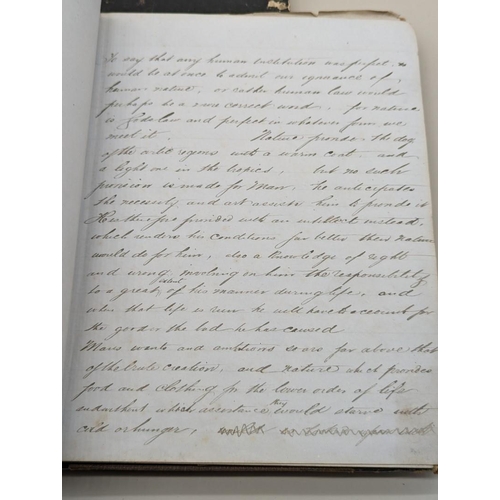 To say that any human institution was perfect
would be at once to admit our ignorance of,
human nature, or rather human law would
perhaps be a more correct word. for nature
is Gods law and perfect in whatever form we
meet it. Nature provides the dog
of the artic regions with a warm coat. and
a light one in the tropics, but no such
provision is made for Man, he anticipates
the necessity, and art assists him to provide it
He is therefore provided with an intellect instead,
which renders his conditions far better then nature
would do for him, also a knowledge of right
and wrong, involving in him the responsibility
to a great extent of his manner during life, and
when that life is over he will have to account for
the good or the bad he has caused
Mans wants and ambitions soar far above that
of the brute creation, and nature which provides
food and clothing for the lower order of life
and without whose assistance they would starve with
cold or hunger,